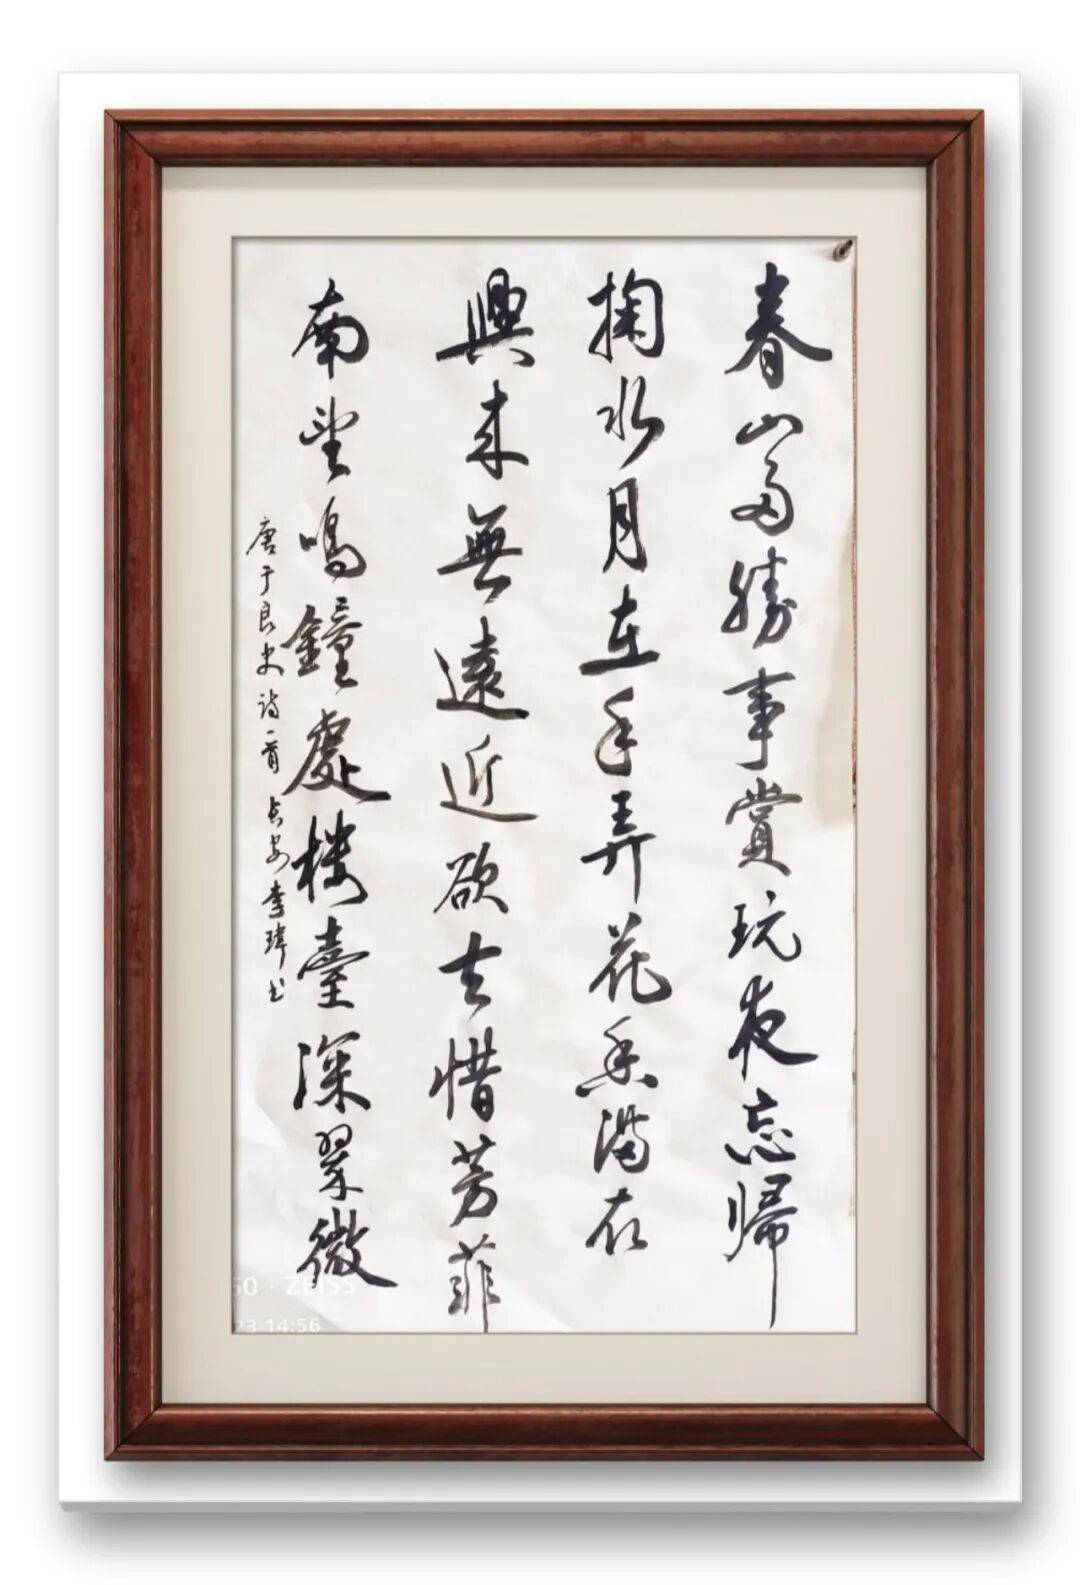 春山多勝事賞玩夜忘歸
掬水月在手弄花香滿衣
興来無遠近欲去惜芳菲
南望鳴鐘處楼臺深翠微
唐于良史诗一首长安李瑋书
ZEISS
14:56